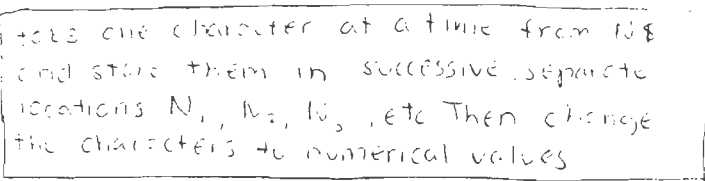 take one character at a time from N$
and store them in successive, separate
locations N1, N2, N3, etc Then change
the characters to numerical values